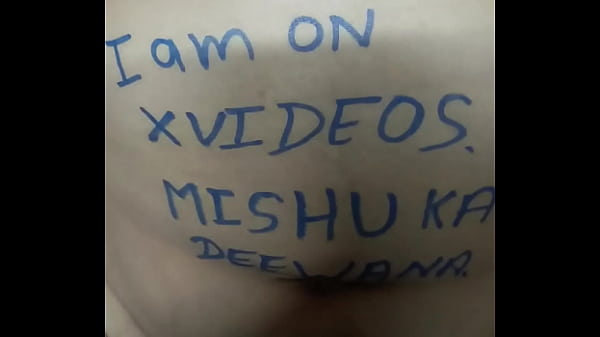 I am ON
XVIDEOS.
MISHU KA
DEEWANA.